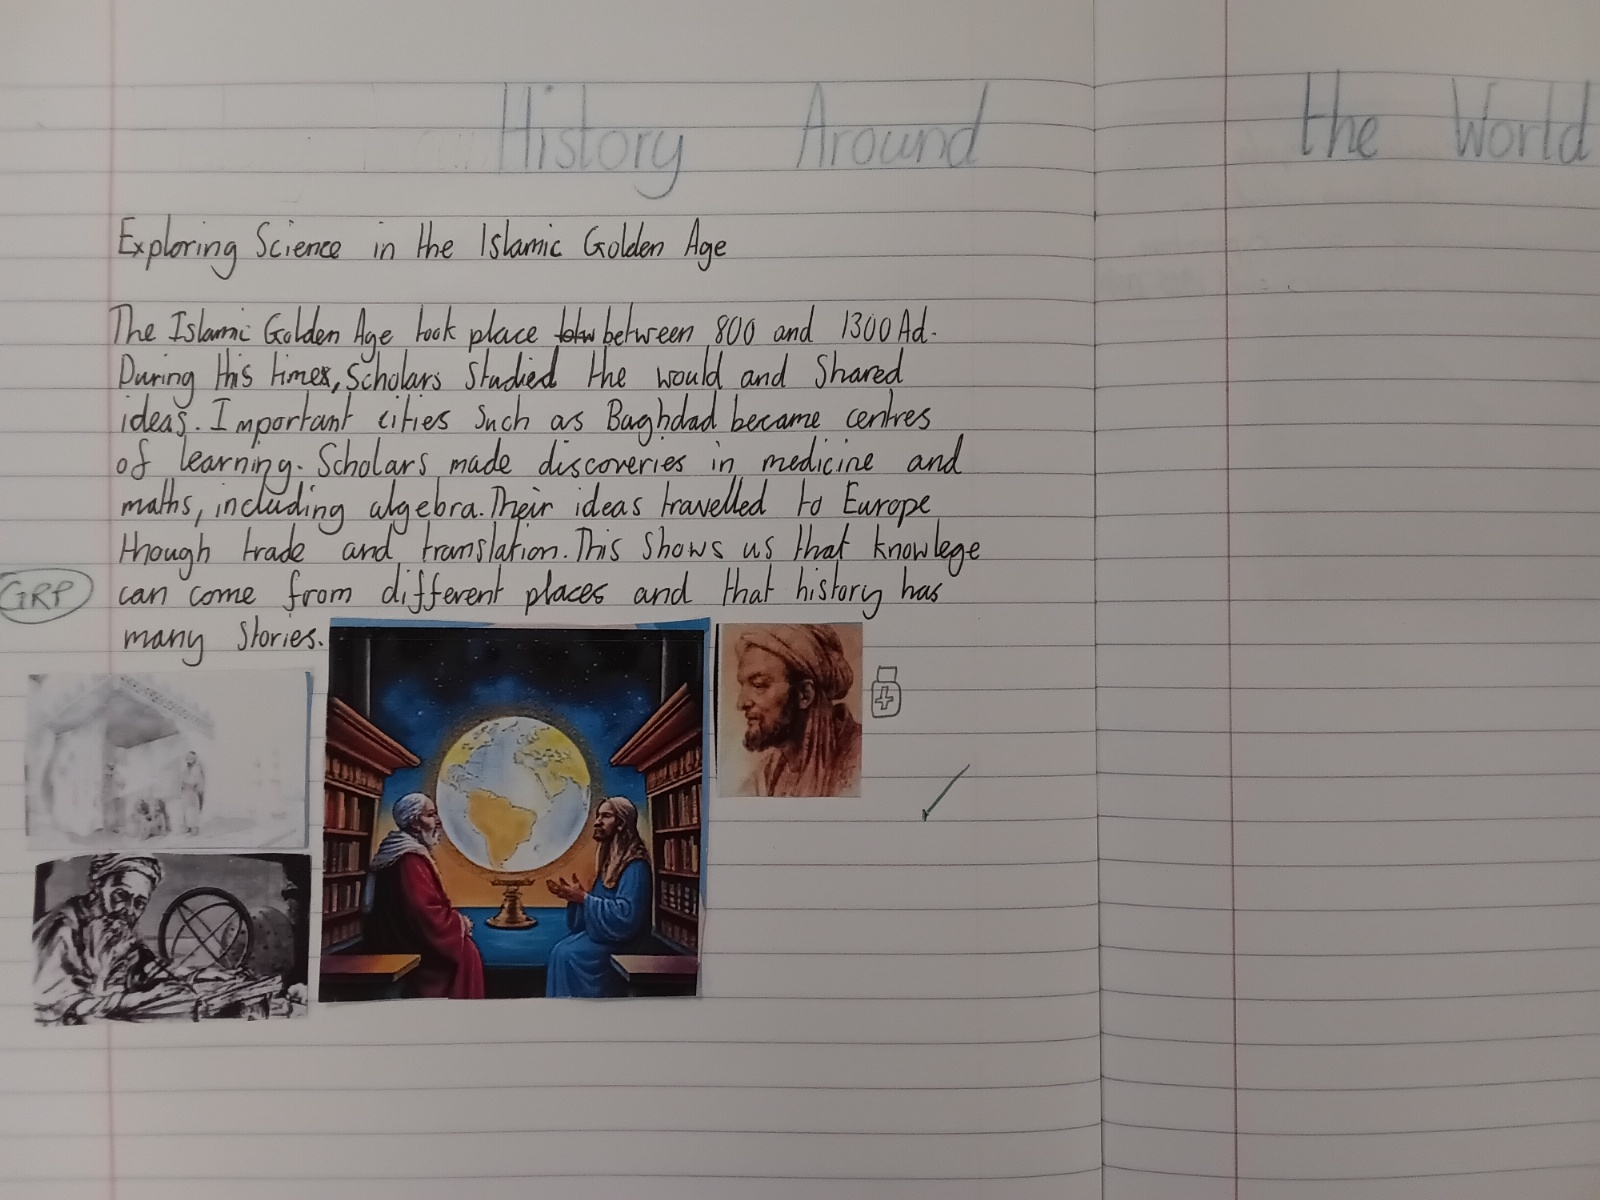 History Around the World
Exploring Science in the Islamic Golden Age
The Islamic Golden Age took place between 800 and 1300 Ad.
During this times, Scholars Studied the would and Shared
ideas. Important cities Such as Baghdad became centres
of learning. Scholars made discoveries in medicine and
maths, including algebra. Their ideas travelled to Europe
though trade and translation. This Shows us that knowlege
GRP can come from different places and that history has
many Stories.